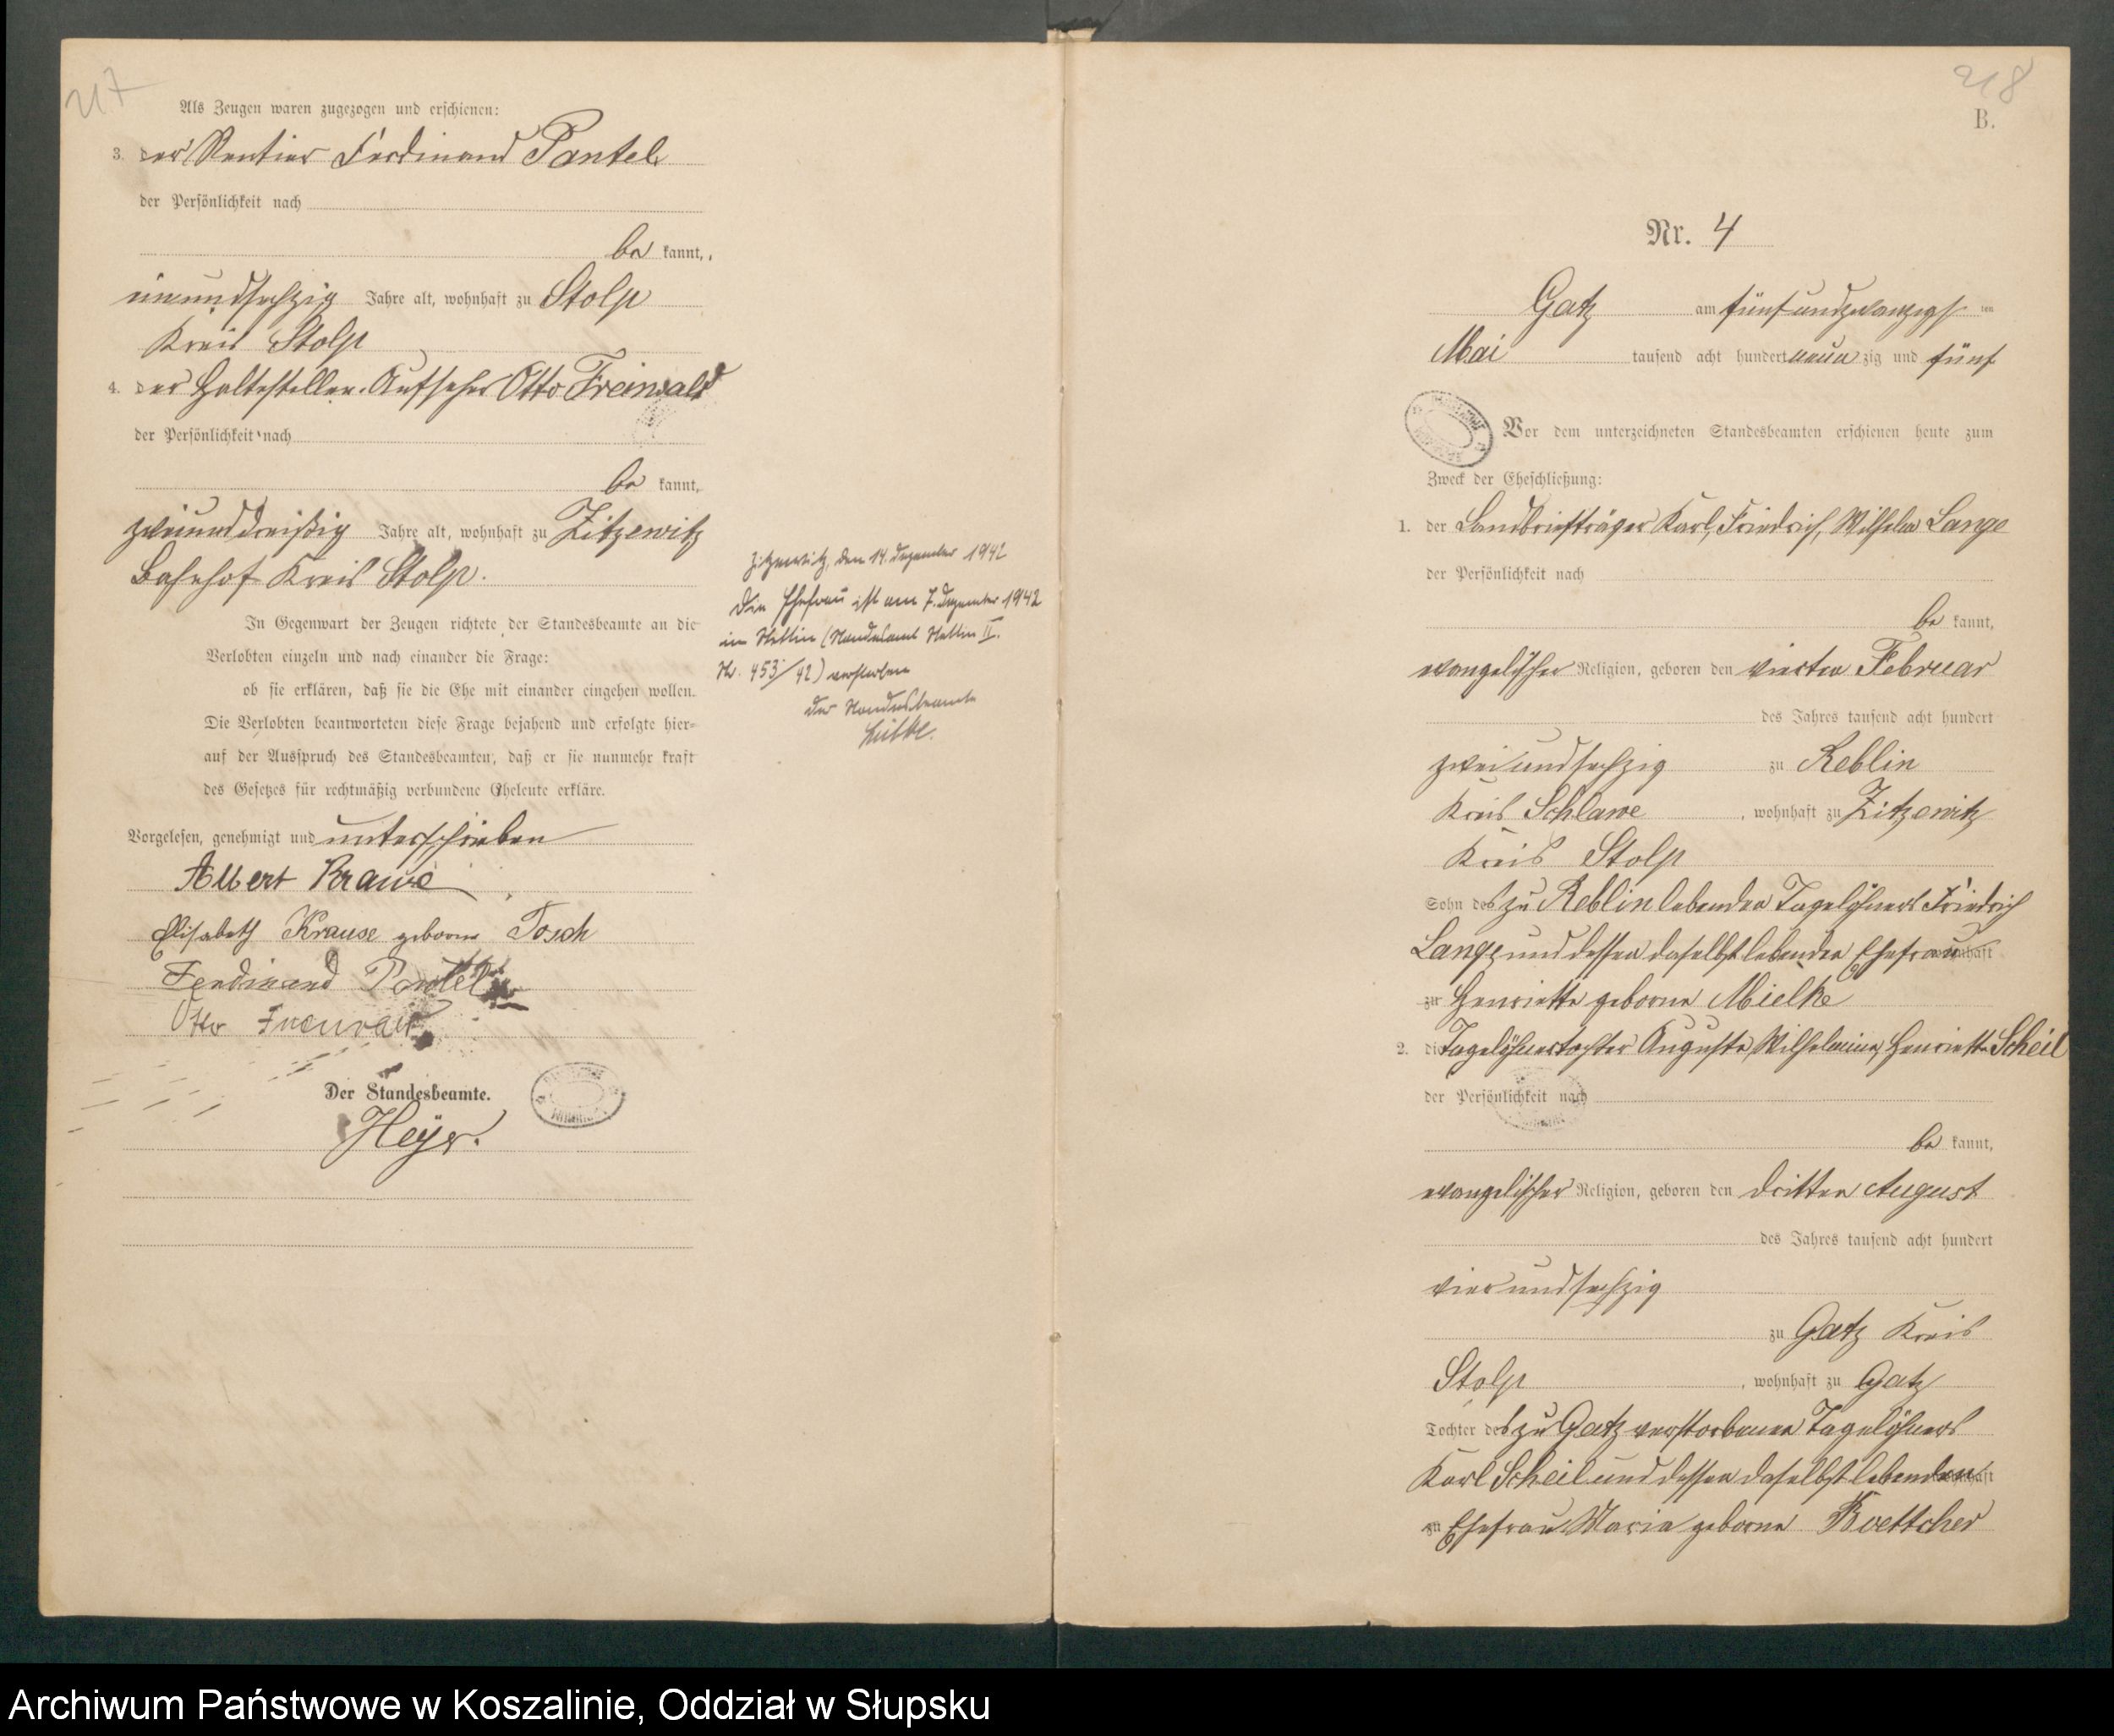 217
Als Zeugen waren zugezogen und erschienen:
3. der Rentier Ferdinand Pantel
der Persönlichkeit nach
be kannt,
einundsechzig Jahre alt, wohnhaft zu Stolp
Kreis Stolp
4. der Haltestellen-Aufseher Otto Freiwald
der Persönlichkeit nach
be kannt,
zweiunddreißig Jahre alt, wohnhaft zu Zitzewitz
Bahnhof Kreis Stolp.
In Gegenwart der Zeugen richtete der Standesbeamte an die
Verlobten einzeln und nach einander die Frage:
ob sie erklären, daß sie die Ehe mit einander eingehen wollen.
Die Verlobten beantworteten diese Frage bejahend und erfolgte hier-
auf der Ausspruch des Standesbeamten, daß er sie nunmehr kraft
des Gesetzes für rechtmäßig verbundene Eheleute erkläre.
Vorgelesen, genehmigt und unterschrieben
Albert Krause
Elisabeth Krause geborne Tosch
Ferdinand Pantel
Otto Freiwald
Der Standesbeamte.
Heyer.
Zitzewitz, den 14. Dezember 1942
Die Ehefrau ist am 7. Dezember 1942
in Stettin (Standesamt Stettin II.
Nr. 453/42) verstorben
Der Standesbeamte
218
B.
Nr. 4
Gatz am fünfundzwanzigs ten
Mai tausend acht hundert neun zig und fünf
Vor dem unterzeichneten Standesbeamten erschienen heute zum
Zweck der Eheschließung:
1. der Landbriefträger Karl, Friedrich, Wilhelm Lange
der Persönlichkeit nach
be kannt,
evangelischer Religion, geboren den vierten Februar
des Jahres tausend acht hundert
zweiundsechzig zu Reblin
Kreis Schlawe, wohnhaft zu Zitzewitz
Kreis Stolp
Sohn des zu Reblin lebenden Tagelöhners Friedrich
Lange und dessen daselbst lebenden Ehefrau wohnhaft
zu Henriette geborne Mielke
2. die Tagelöhnertochter Auguste, Wilhelmine, Henriette Scheil
der Persönlichkeit nach
be kannt,
evangelischer Religion, geboren den dritten August
des Jahres tausend acht hundert
vierundsechzig
zu Gatz Kreis
Stolp, wohnhaft zu Gatz
Tochter des zu Gatz verstorbenen Tagelöhners
Karl Scheil und dessen daselbst lebenden wohnhaft
zu Ehefrau Maria geborne Boettcher
Archiwum Państwowe w Koszalinie, Oddział w Słupsku